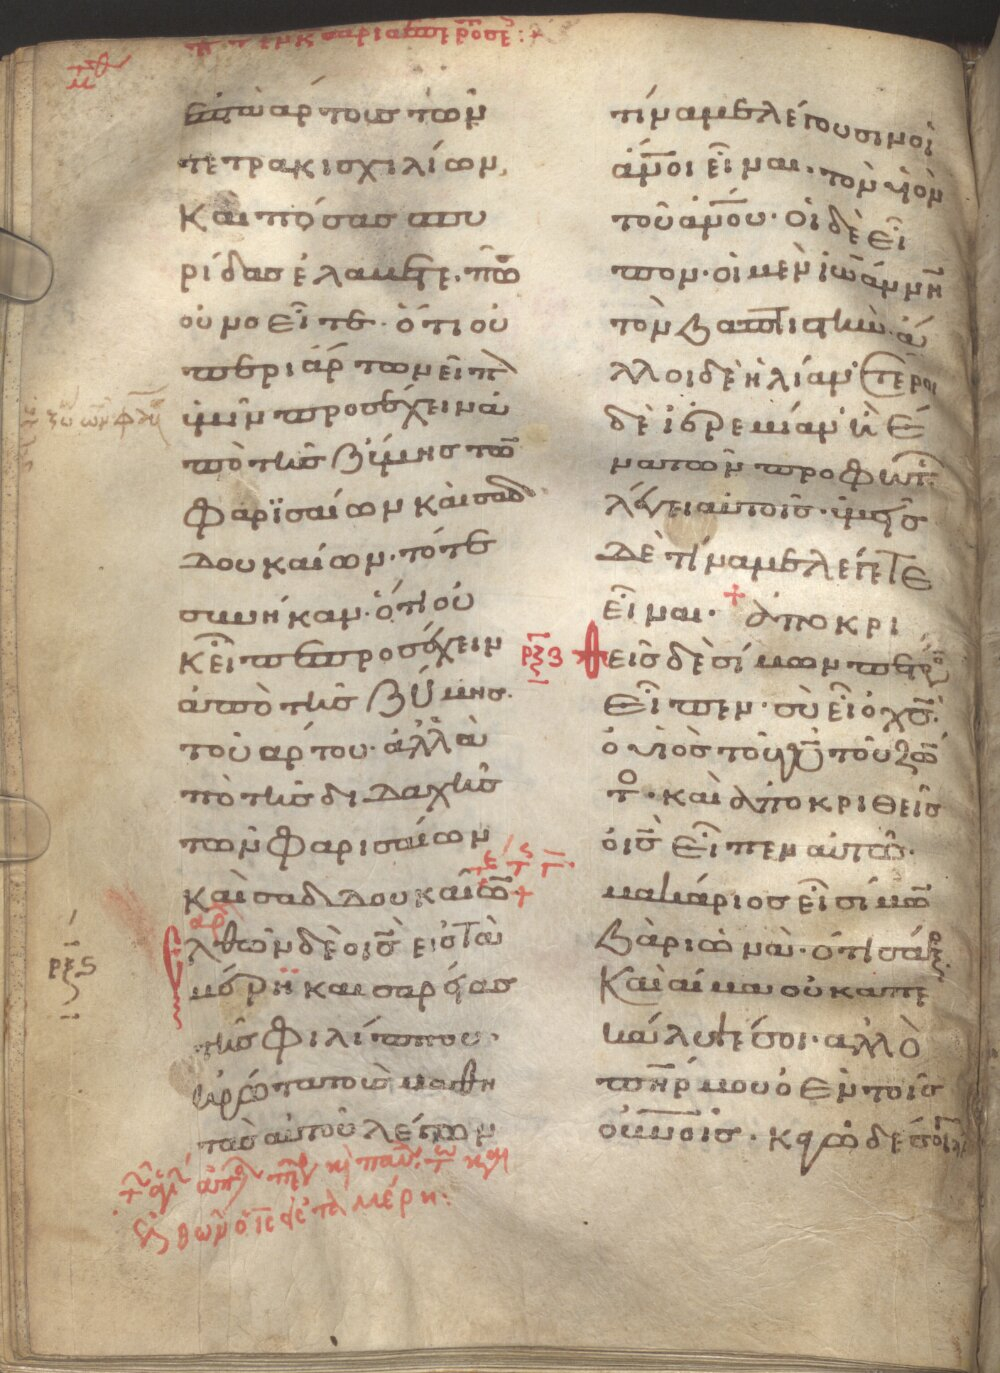 ἑπτὰ ἄρτους τῶν
τετρακισχιλίων,
Καὶ πόσας σπυ
ρίδας ἐλάβετε. πῶ
οὐ νοεῖτε. ὅτι οὐ
περὶ ἄρτων εἶπ
ὑμῖν προσέχειν ἀ
πὸ τῆς ζύμης τῶ
Φαρϊσαίων καὶ σαδ
δουκαίων. τότε
συνῆκαν. ὅτι οὐ
κ εἶπε προσέχειν
ἀπὸ τῆς ζύμης.
τοῦ ἄρτου. ἀλλὰ ἀ
πὸ τῆς διδαχῆς
τῶν Φαρισαίων
καὶ σαδδουκαίω +
ἀρχ
Ἐλθὼν δὲ ὁ ις εἰς τὰ
μέρη καισαρείας
τῆς Φιλίππου.
ἠρώτα τοὺς μαθη
τὰς αὐτοῦ λέγων
ρξς
τίνα με λέγουσιν οἱ
ἄνοι εἶναι. τὸν υἱὸν
τοῦ ἀνου. Οἱ δὲ εἶ
πον. οἱ μὲν ἰωάννη
τὸν βαπτιστήν. ἄ
λλοι δὲ ἠλίαν. ἕτεροι
δὲ ἱερεμίαν. ἢ ἕ
να τῶν προφητ
λέγει αὐτοῖς. ὑμεῖς
Δὲ τίνα με λέγετε
εἶναι. + ἀποκρι
ρξζ θεὶς δὲ σίμων πέτρο
Εἶπεν. σὺ εἶ ὁ χς.
ὁ υἱὸς τοῦ θυ τοῦ ζῶ
το. καὶ ἀποκριθεὶς
ὁ ις Εἶπεν αὐτῷ.
μακάριος εἶ σίμω
βαριωνᾶ. ὅτι σὰρξ
Καὶ αἷμα οὐκ ἀπε
κάλυψέ σοι. ἀλλ ὁ
πηρ μου ὁ Ἐν τοῖς
οὐνοῖς. κἀγὼ δέ σοι